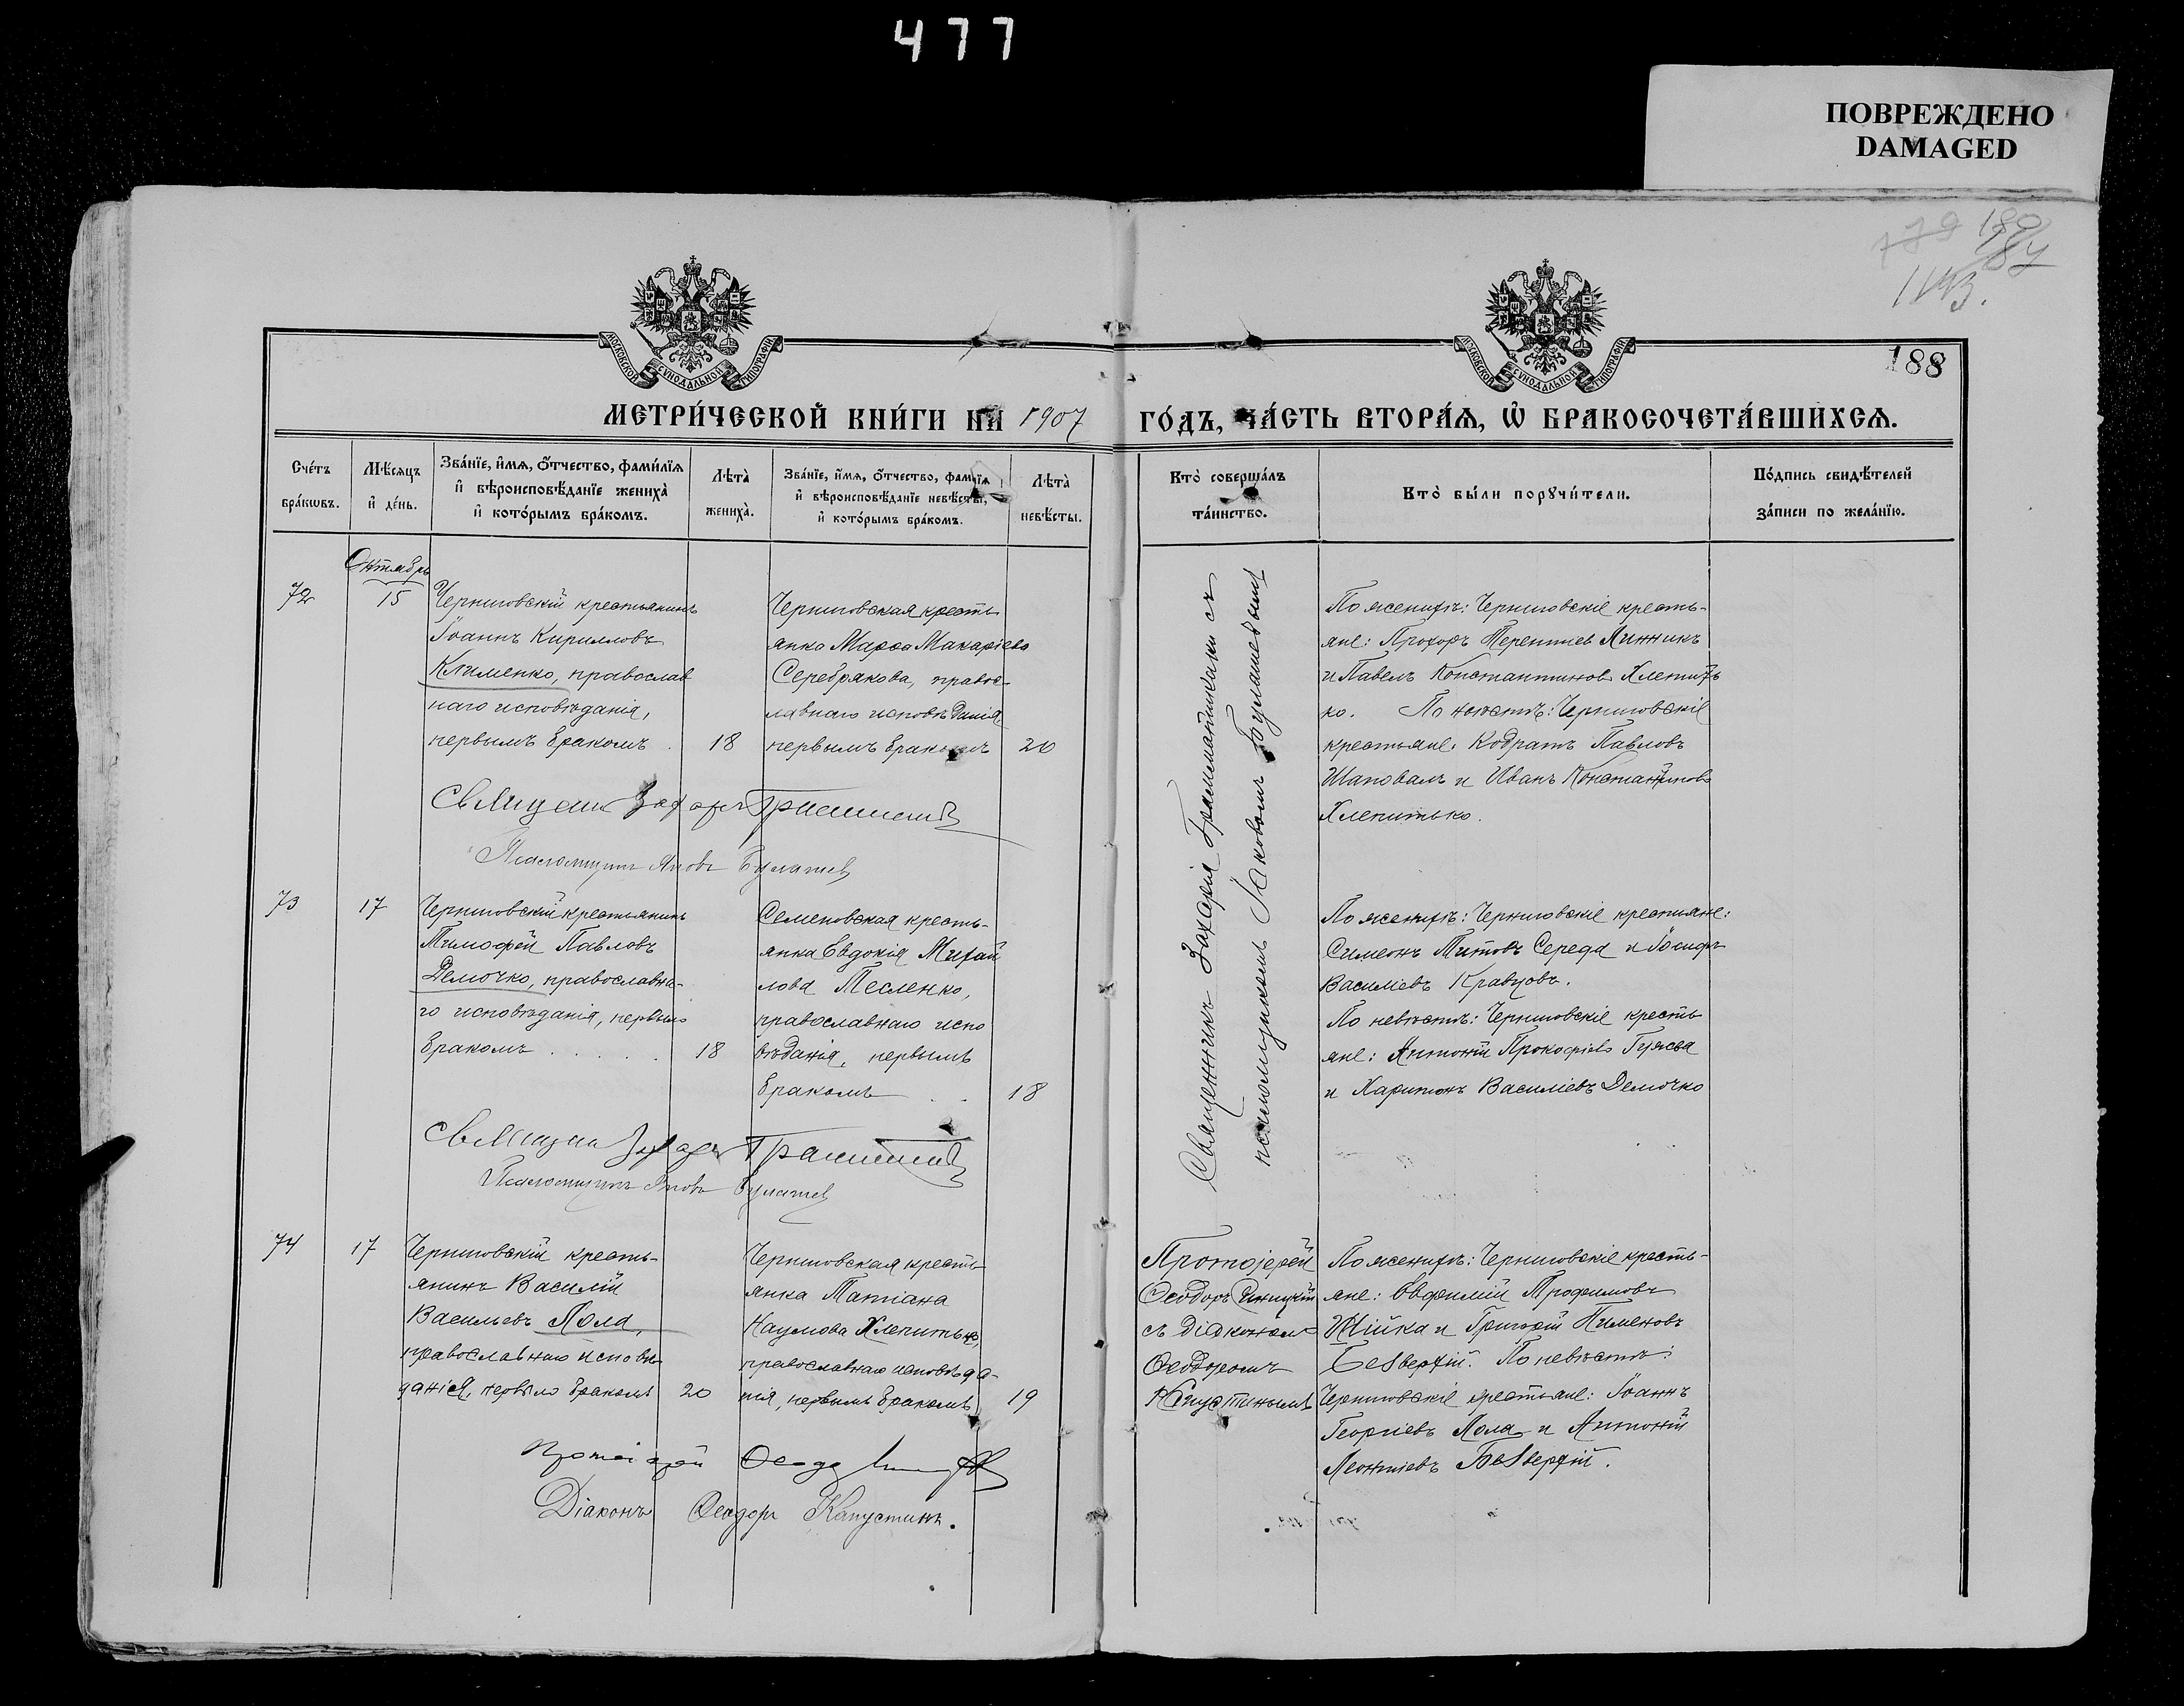 477
ПОВРЕЖДЕНО
DAMAGED
180
1143.
188
МОСКОВСКОЙ СѴНОДАЛЬНОЙ ТИПОГРАФІИ
МОСКОВСКОЙ СѴНОДАЛЬНОЙ ТИПОГРАФІИ
МЕТРИ́ЧЕСКОЙ КНИ́ГИ НА 1907 ГО́ДЪ, ЧА́СТЬ ВТОРА́Я, Ѡ БРАКОСОЧЕТА́ВШИХСЯ.
Сче́тъ бра́кѡвъ.
Мѣ́сяцъ и де́нь.
Зва́нїе, и́мя, о́тчество, фами́лїя и вѣроисповѣ́данїе жениха̀ и кото́рымъ бра́комъ.
Лѣта̀ жениха̀.
Зва́нїе, и́мя, о́тчество, фами́лїя и вѣроисповѣ́данїе невѣ́сты, и кото́рымъ бра́комъ.
Лѣта̀ невѣ́сты.
Кто̀ соверша́лъ та́инство.
Кто̀ бы́ли порꙋчи́тели.
По́дпись свидѣ́телей за́писи по жела́нїю.
Октябрь
72
15
Черниговскій крестьянинъ
Іоаннъ Кирилловъ
Клименко, православ
наго исповѣданія,
первымъ бракомъ . 18
Черниговская кресть
янка Марѳа Макаріева
Серебрякова, правос-
лавнаго исповѣданія
первымъ бракомъ 20
Священникъ Захарія Грамматикати съ
псаломщикомъ Іаковомъ Булашевымъ
По женихѣ: Черниговскіе кресть-
яне: Прохоръ Терентіев Линникъ
и Павелъ Константинов Хлепить
ко. По невѣстѣ: Черниговскіе
крестьяне: Кодратъ Павловъ
Шаповалъ и Иванъ Константинов
Хлепитько.
Священникъ Захарія
Псаломщикъ Яковъ Булашев
73
17
Черниговскій крестьянинъ
Тимоѳей Павловъ
Демочко, православна-
го исповѣданія, первымъ
бракомъ . . . . . 18
Семеновская кресть-
янка Евдокія Михай
лова Тесленко,
православнаго испо
вѣданія, первымъ
бракомъ . . 18
По женихѣ: Черниговскіе крестьяне:
Симеонъ Титовъ Середа и Іосифъ
Василіевъ Кравцовъ.
По невѣстѣ: Черниговскіе кресть
яне: Антоній Прокофіевъ
и Харитонъ Василіевъ Демочко
Священникъ Захарія
Псаломщикъ Яковъ Булашев
74
17
Черниговскій кресть-
янинъ Василій
Васильевъ Лола,
православнаго исповѣ
данія, первымъ бракомъ 20
Черниговская кресть
янка Татіана
Наумова Хлепитько,
православнаго исповѣда-
нія, первымъ бракомъ 19
Протоіерей
Ѳеодоръ Синицкій
съ діакономъ
Ѳеодоромъ
Капустинымъ
По женихѣ: Черниговскіе кресть-
яне: Евфимій Трофимовъ
Шійка и Григорій Пименовъ
Безверхій. По невѣстѣ:
Черниговскіе крестьяне: Іоаннъ
Георгіевъ Лола и Антоній
Леонтіевъ Безверхій.
Протоіерей Ѳеодоръ
Діаконъ Ѳеодоръ Капустинъ.